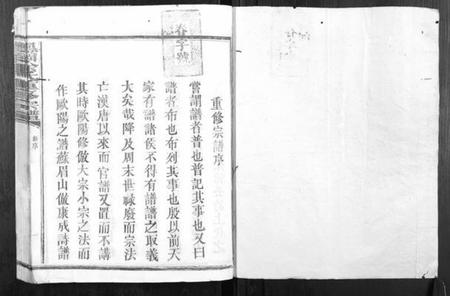 春字號
重修宗譜序
嘗謂譜者普也普記其事也又曰
譜者布也布列其事也殷以前天
家有譜諸侯不得有譜譜之取義
大矣哉降及周末世喊廢而宗法
亡漢唐以來而官譜又置而不講
其時歐陽修倣大宗小宗之法而
作歐陽之譜蘇眉山倣康成詩譜
新序